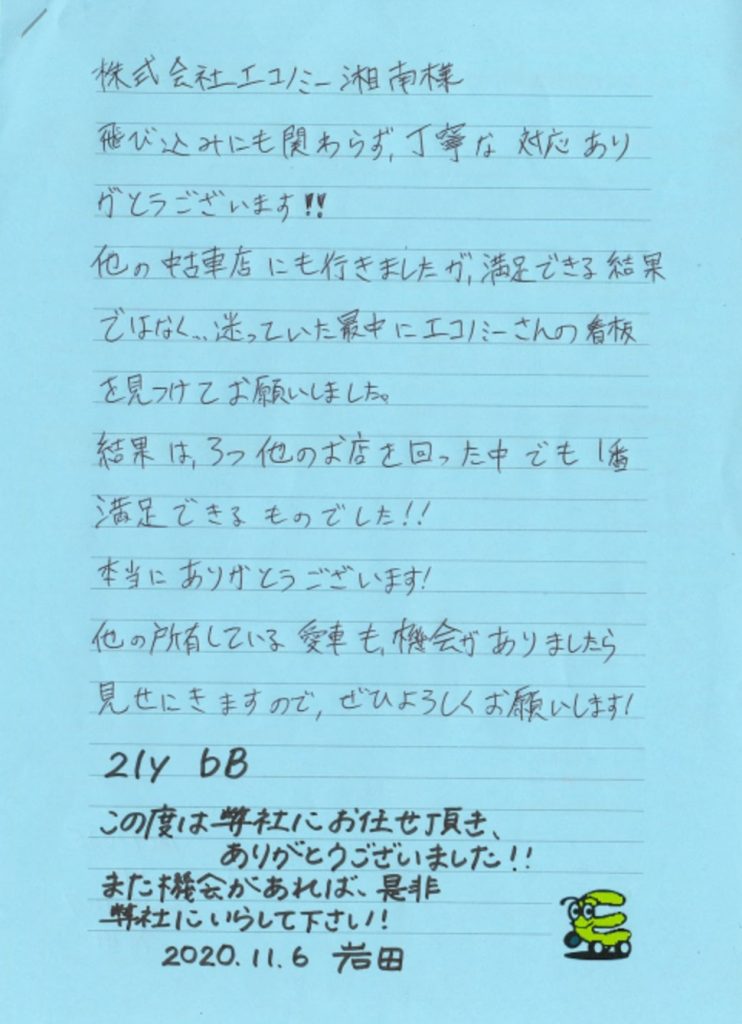 株式会社エコノミー湘南様
飛び込みにも関わらず、丁寧な 対応 あり
がとうございます!!
他の中古車店 にも行きましたが、満足できる結果
ではなく…迷っていた最中にエコノミーさんの看板
を見つけてお願いしました。
結果は、3つ他のお店を回った中でも1番
満足できるものでした!!
本当に ありがとうございます!
他の所有している 愛車も、機会が ありましたら
見せにきますので、ぜひよろしくお願いします!
21y bB
この度は弊社にお任せ頂き、
ありがとうございました!!
また機会があれば、是非
弊社にいらして下さい!
2020.11.6 岩田